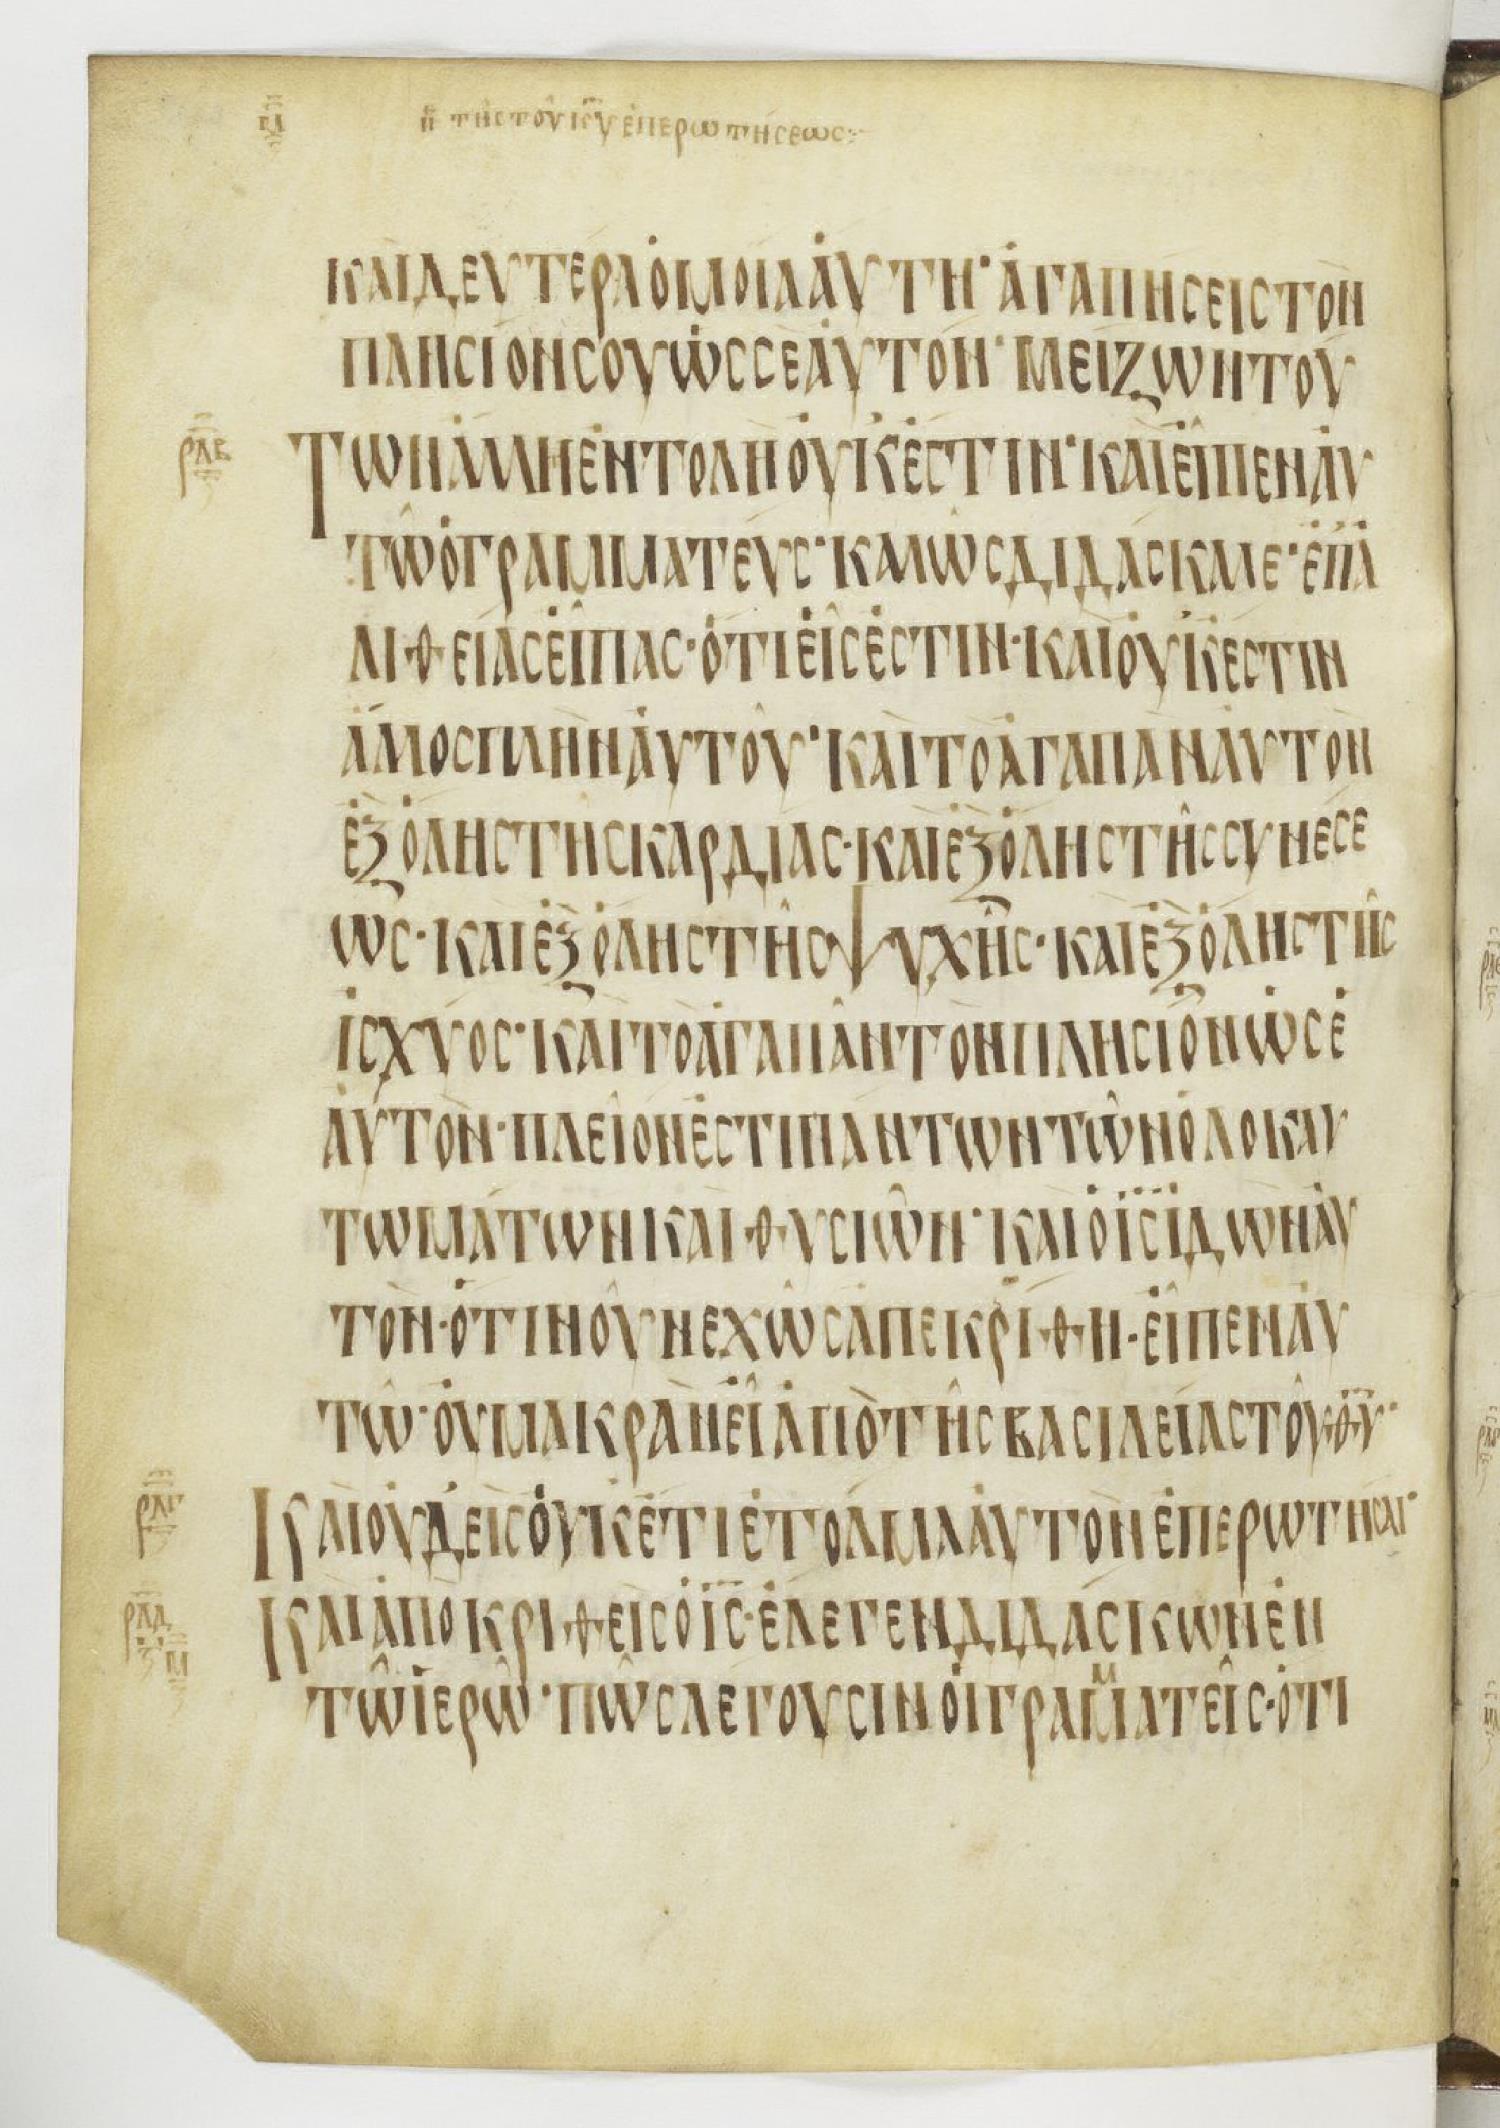 μ τῆς τοῦ ιυ ἐπερωτήσεως
ΚΑΙ ΔΕΥΤΕΡΑ ὉΜΟΙΑ ἈΥΤΗ· ἈΓΑΠΗΣΕΙΣ ΤΟΝ
ΠΛΗΣΙΟΝ ΣΟΥ ὩΣ ΣΕΑΥΤΟΝ· ΜΕΙΖΩΝ ΤΟΥ
ΡΛΒ ΤΩΝ ἈΛΛΗ ἘΝΤΟΛΗ ΟΥΚ ἘΣΤΙΝ· ΚΑΙ ΕἸΠΕΝ ΑΥ
ΤΩ Ὁ ΓΡΑΜΜΑΤΕΥΣ· ΚΑΛΩΣ ΔΙΔΑΣΚΑΛΕ· ἘΠ Ἀ
ΛΙΘΕΙΑΣ ΕἸΠΑΣ· ὉΤΙ ΕἹΣ ἘΣΤΙΝ· ΚΑΙ ΟΥΚ ΕΣΤΙΝ
ἈΛΛΟΣ ΠΛΗΝ ΑΥΤΟΥ· ΚΑΙ ΤΟ ἈΓΑΠΑΝ ΑΥΤΟΝ
ἘΞ ὉΛΗΣ ΤΗΣ ΚΑΡΔΙΑΣ· ΚΑΙ ἘΞ ὉΛΗΣ ΤΗΣ ΣΥΝΕΣΕ
ΩΣ· ΚΑΙ ἘΞ ὉΛΗΣ ΤΗΣ ΨΥΧΗΣ· ΚΑΙ ἘΞ ὉΛΗΣ ΤΗΣ
ἸΣΧΥΟΣ· ΚΑΙ ΤΟ ἈΓΑΠΑΝ ΤΟΝ ΠΛΗΣΙΟΝ ὩΣ Ἑ
ΑΥΤΟΝ· ΠΛΕΙΟΝ ἘΣΤΙ ΠΑΝΤΩΝ ΤΩΝ ὉΛΟΚΑΥ
ΤΩΜΑΤΩΝ ΚΑΙ ΘΥΣΙΩΝ· ΚΑΙ Ὁ ΙΣ ἸΔΩΝ ΑΥ
ΤΟΝ· ὉΤΙ ΝΟΥΝΕΧΩΣ ἈΠΕΚΡΙΘΗ· ΕἸΠΕΝ ΑΥ
ΤΩ· ΟΥ ΜΑΚΡΑΝ ΕἸ ἈΠΟ ΤΗΣ ΒΑΣΙΛΕΙΑΣ ΤΟΥ ΘΥ·
ΡΛΓ ΚΑΙ ΟΥΔΕΙΣ ΟΥΚΕΤΙ ἘΤΟΛΜΑ ΑΥΤΟΝ ἘΠΕΡΩΤΗΣΑΙ·
ΡΛΔ ΚΑΙ ἈΠΟΚΡΙΘΕΙΣ Ὁ ΙΣ· ἘΛΕΓΕΝ ΔΙΔΑΣΚΩΝ ἘΝ
ΤΩ ἹΕΡΩ· ΠΩΣ ΛΕΓΟΥΣΙΝ ΟἹ ΓΡΑΜΜΑΤΕΙΣ· ὉΤΙ